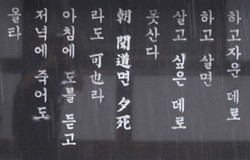 하고자운 데로
하고 살면
살고 싶은 데로
못산다
朝聞道면 夕死
라도 可也라
아침에 도를 듣고
저녁에 죽어도
올타